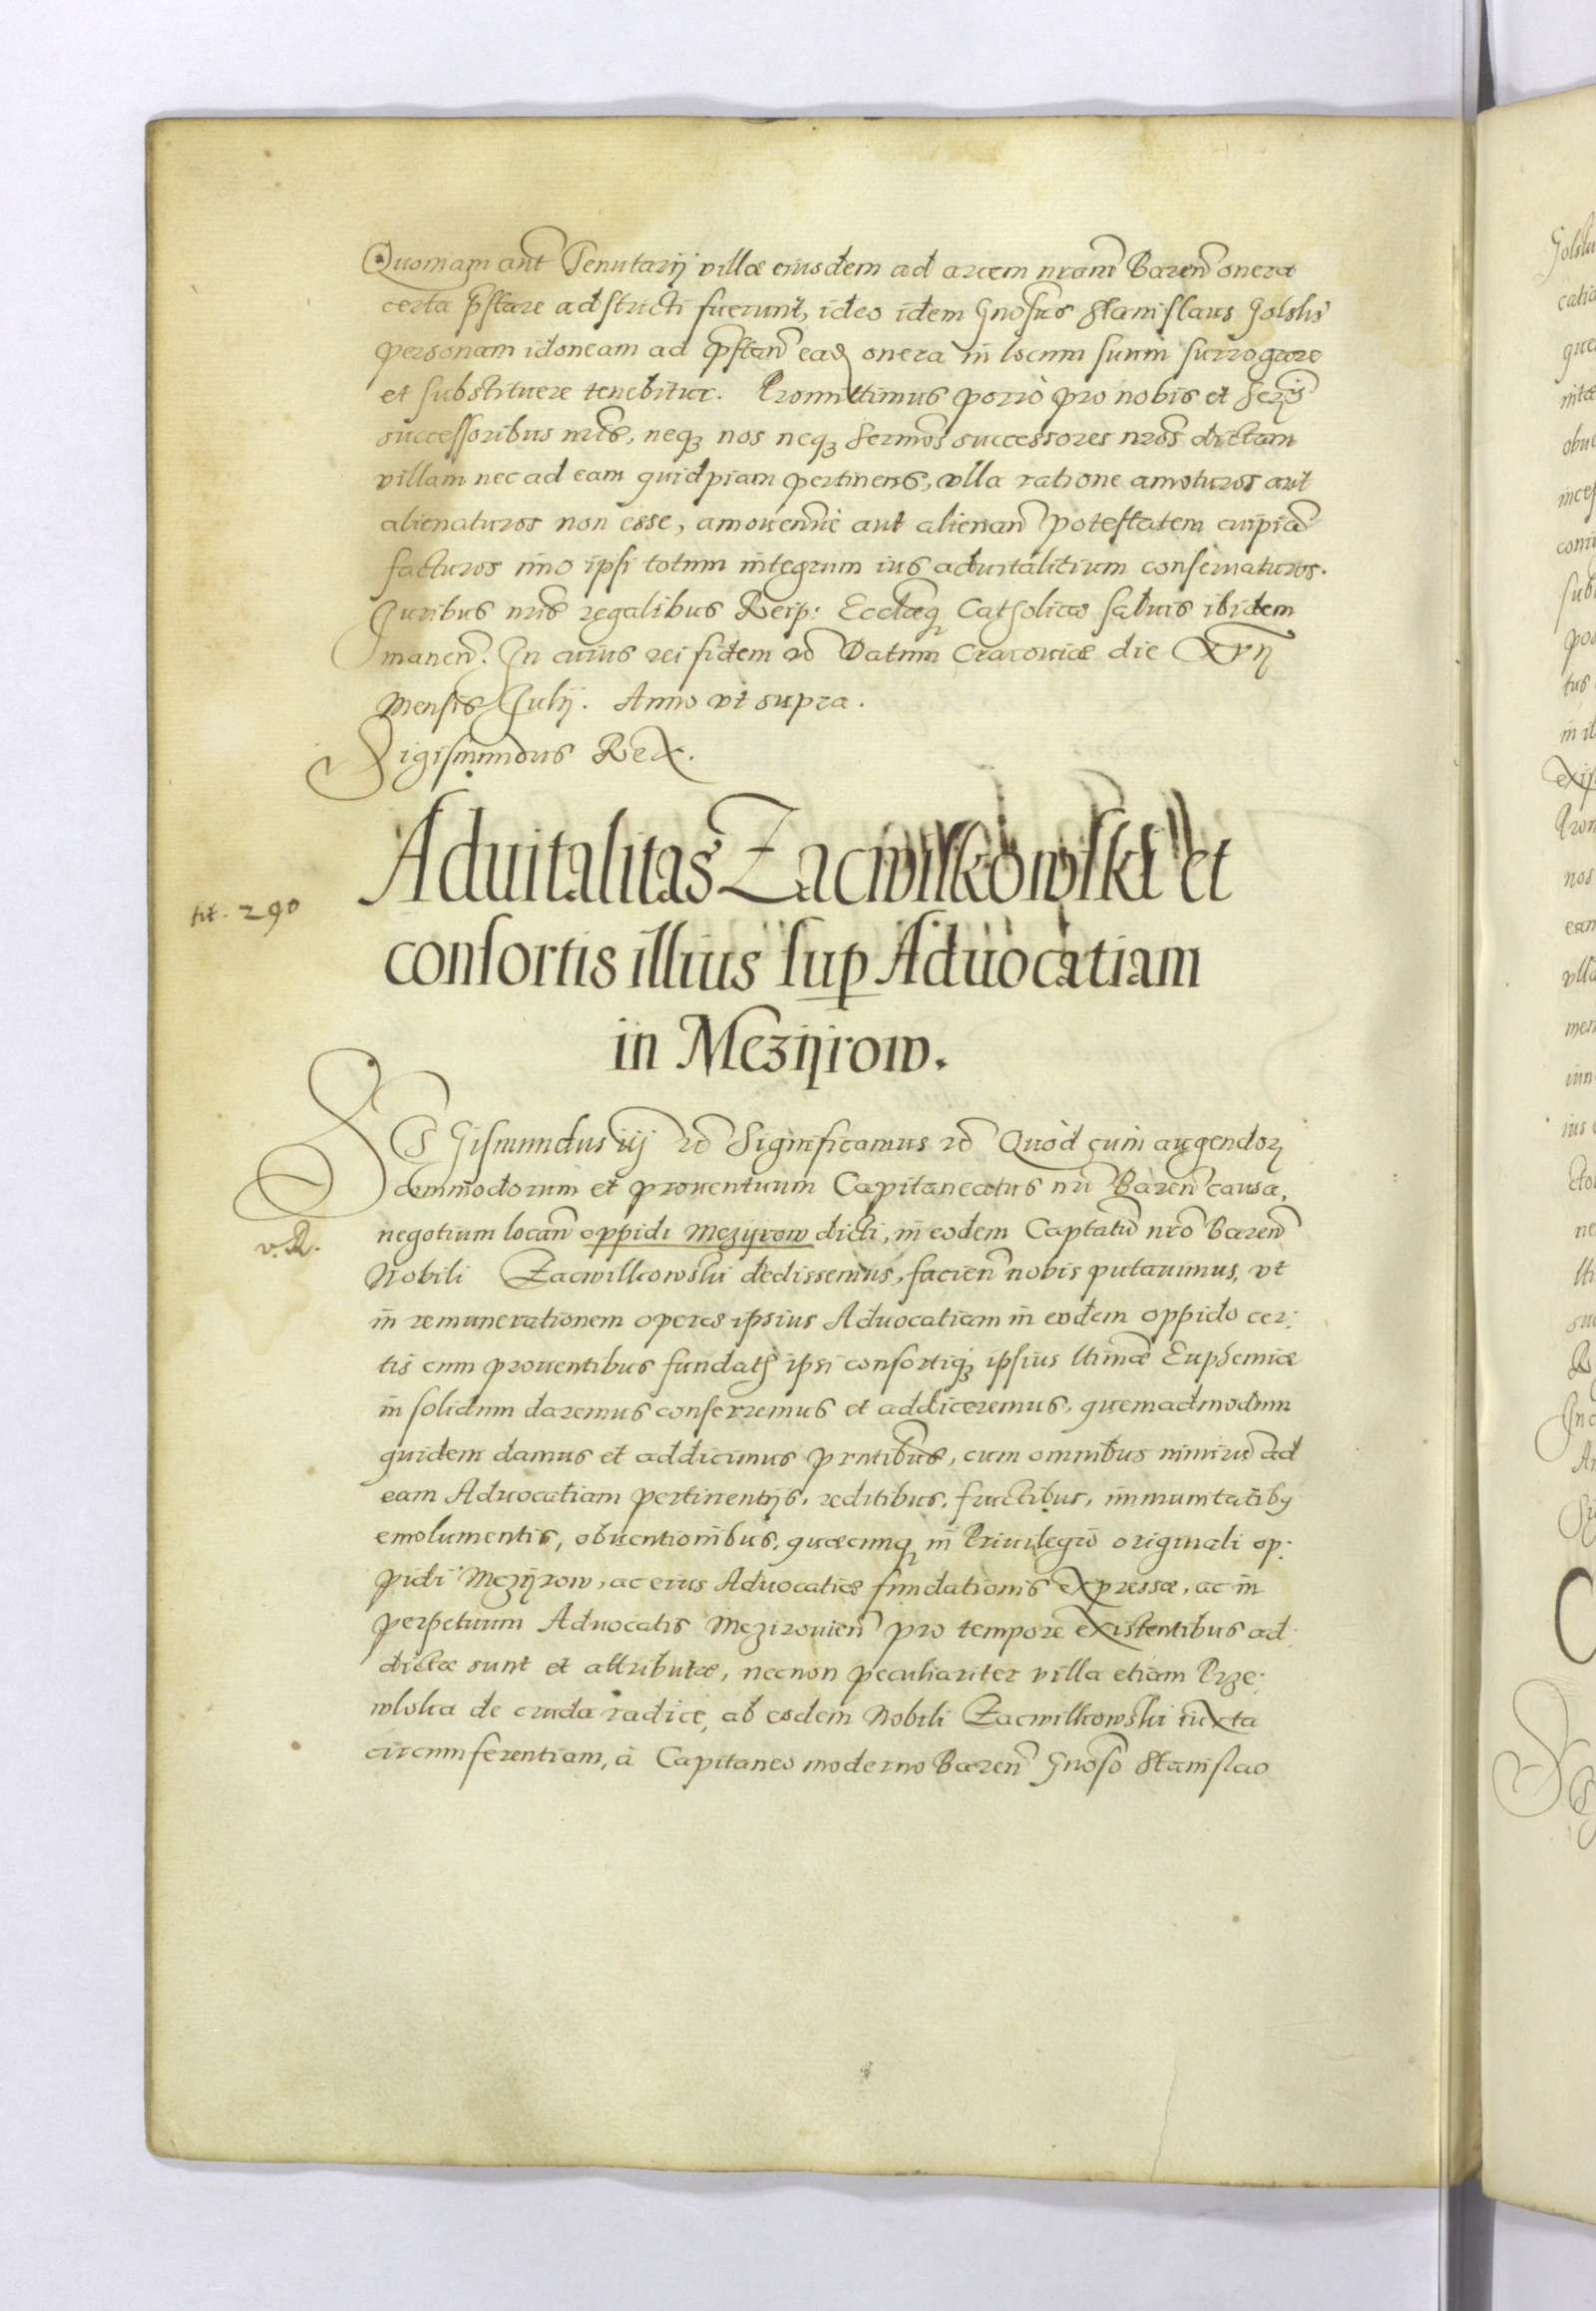 Quoniam aut Tenutarij villæ eiusdem ad arcem nram Baren onera
certa pstare adstricti fuerunt, ideo idem Gnosus Stanislaus Golski
personam idoneam ad pstan ead onera in locum suum surrogare
et substituere tenebitur. Promittimus porrò pro nobis et Seris
successoribus nris, neq nos neq Sermos successores nros dictam
villam nec ad eam quidpiam pertinens, vlla ratione amoturos aut
alienaturos non esse, amouendi aut alienan potestatem cuipia
facturos imo ipsi totum integrum ius aduitalitium conseruaturos.
Juribus nris regalibus Reip: Ecclæq Catholicæ saluis ibidem
manen. In cuius rei fidem &c Datum Cracouiæ die XVII
Mensis Julij. Anno vt supra.
Sigismundus Rex.
Aduitalitas Zacwilkowski et
tit. 290
consortis illius sup Aduocatiam
in Mezÿrow.
SIGismundus iij &c Significamus &c Quòd cum augendor
commodorum et prouentuum Capitaneatus nri Baren causa,
negotium locan oppidi Mezyrow dicti, in eodem Captatu nro Baren
v. R.
Nobili Zacwilkowski dedissemus, facien nobis putauimus, vt
in remunerationem operæ ipsius Aduocatiam in eodem oppido cer:
tis cum prouentibus fundatã ipsi consortiq ipsius ltimæ Euphemiæ
in solidum daremus conferremus et addiceremus, quemadmodum
quidem damus et addicimus prntibus, cum omnibus nimiru ad
eam Aduocatiam pertinentijs, reditibus, fructibus, immunitatibq
emolumentis, obuentionibus, quæcunq in Priuilegio originali op:
pidi Mezÿrow, ac eius Aduocatiæ fundationis expressæ, ac in
perpetuum Aduocatis Mezirouien pro tempore existentibus ad:
dictæ sunt et attributæ, necnon peculiariter villa etiam Prze:
wloka de cruda radice, ab eodem Nobili Zacwilkowski iuxta
circumferentiam, à Capitaneo moderno Baren Gnoso Stanislao